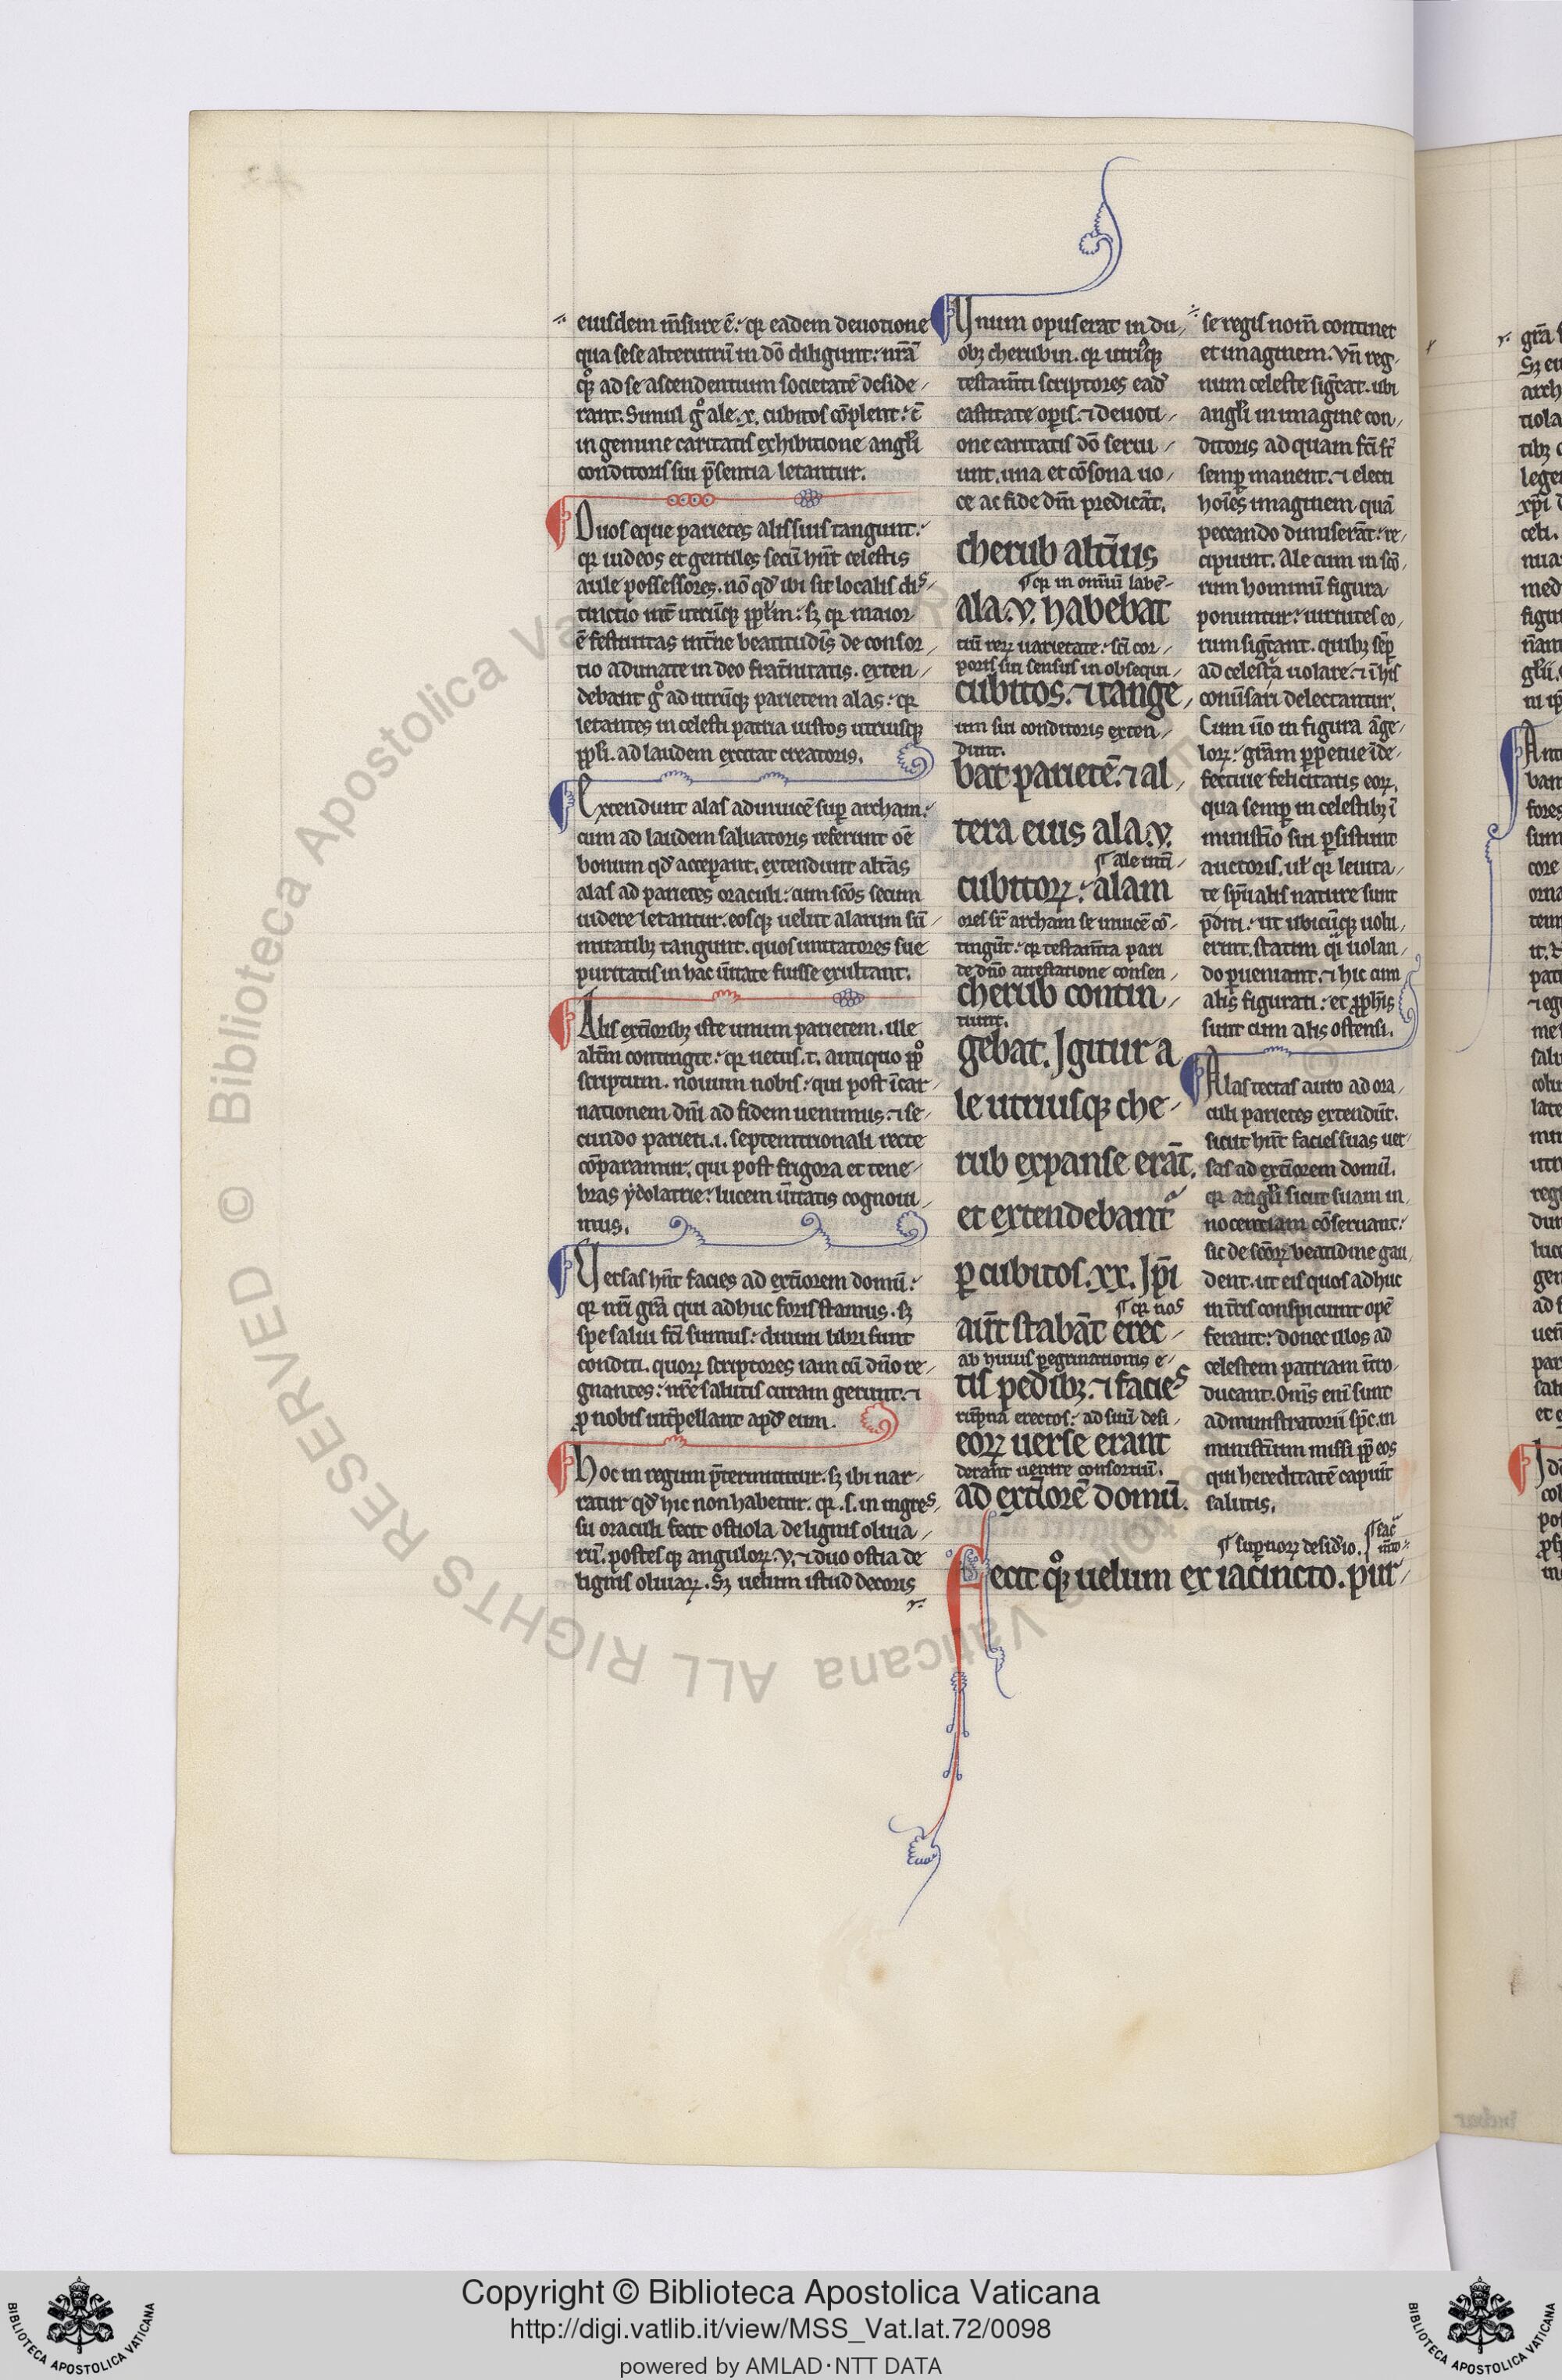 eiusdem m̄sure ē: qr eadem deuotione
qua sese alterutrū in dō diligunt: nr̄ā
q̊ꝫ ad se ascendentium societatē deside
rant. Simul g̊ ale .x. cubitos cōplent: ī
in gemine caritatis exhibitione angl̄i
conditoris sui p̄sentia letantur.
Duos eque parietes alis suis tangunt:
qr iudeos et gentiles secū hn̄t celestis
aule possessores. nō qd̄ ibi sit localis dis
tinctio int̄ utrūq ꝓplm: sꝫ qr maior
ē festiuitas int̄ne beatitudīs de consor
tio adunate in deo frat̄nitatis. exten
debant g̊ ad utrūq parietem alas: qr
letantes in celesti patria iustos utriusq
ꝓpli. ad laudem excitat creatoris.
Extendunt alas adinuicē suꝑ archam:
cum ad laudem saluatoris referunt oē
bonum qd̄ acceꝑant. extendunt alt̄as
alas ad parietes oraculi: cum scōs secum
uidere letantur. eosq uelut alarum sū
mitatibꝫ tangunt. quos imitatores sue
puritatis in hac uītate fuisse exultant.
Alis ext̄ioribꝫ iste unum parietem. ille
alt̄m contingit: qr uetus .t. antiquo ꝓp̊
scriptum. nouum nobis: qui post īcar
nationem dn̄i ad fidem uenimus: ⁊ se
cundo parieti .i. septemtrionali recte
cōparamur. qui post frigora et tene
bras ydolatrie: lucem ūitatis cognoui
mus.
Versas hn̄t facies ad ext̄iorem domū:
qr nr̄i grā qui adhuc foris stamus. sꝫ
spe salui fc̄i sumus: diuini libri sunt
conditi. quoꝝ scriptores iam cū dn̄o re
gnantes: nr̄e salutis curam gerunt: ⁊
ꝓ nobis int̄pellant apd̄ eum.
Hoc in regum p̄termittitur. sꝫ ibi nar
ratur qd̄ hic non habetur. qr .s. in ingres
su oraculi fecit ostiola de lignis oliua
rū. postesq anguloꝝ .v. ⁊ duo ostia de
lignis oliuaꝝ. Sꝫ uelum istud decoris
Vnum opus erat in du
obꝫ cherubin. qr utriq
testam̄ti scriptores ead̄
castitate opis. ⁊ deuoti
one caritatis dō serui
unt. una et cōsona uo
ce ac fide dn̄m predicāt.
cherub alt̄ius
qr in omniū labē
ala .v. habebat
tiū reꝝ uarietate: sc̄i cor
poris sui sensus in obsequi
cubitos. ⁊ tange
um sui conditoris exten
dunt.
bat parietē. ⁊ al
tera eius ala .v.
ale inti
cubitoꝝ: alam
ores sr̄ archam se inuicē cō
tingūt: qr testam̄ta pari
de dn̄o attestatione consen
cherub contin
tiunt.
gebat. Igitur a
le utriusq che
rub expanse erāt.
et extendebantᷣ
ꝑ cubitos .xx. Ip̄i
qr nos
aut̄ stabāt erec
ab huius ꝑegrinationis e
tis pedibꝫ: ⁊ facies
rūpna erectos: ad suū desi
eoꝝ uerse erant
derant uenire consortiū.
ad ext̄iorē domū.
se regis nom̄ continet
et imaginem. Vn̄ reg
num celeste sigc̄at. ubi
angl̄i in imagine con
ditoris ad quam fc̄i st̄
semꝑ manent. ⁊ electi
hoīes imaginem quā
peccando dimiserāt: re
cipiunt. Ale cum in scō
rum hominū figura
ponuntur: uirtutes eo
rum sigc̄ant. quibꝫ sep̄
ad celestia uolare: ⁊ ī his
conūsari delectantur.
Cum ūo in figura āge
loꝝ: grām ꝑpetue īde
fectiue felicitatis eoꝝ.
qua semꝑ in celestibꝫ ī
minist̄io sui ꝑsistunt
auctoris. ul̄ qr leuita
te spūalis nature sunt
p̄diti: ut ubicūq uolu
erint. statim qi uolan
do ꝑueniant: ⁊ hic cum
alis figurati: et ꝓph̄is
sunt cum alis ostensi.
Alas tectas auro ad ora
culi parietes extendūt.
sicut hn̄t facies suas uer
sas ad ext̄iorem domū.
qr angl̄i sicut suam in
nocentiam cōseruant:
sic de scōꝝ beatidine gau
dent. ut eis quos adhuc
in t̄ris conspiciunt opē
ferant: donec illos ad
celestem patriam int̄o
ducant. Om̄s enī sunt
administratorii spc̄. in
minist̄ium missi ꝓp̄ eos
qui hereditatē capiūt
salutis.
supnoꝝ desid̄io.
Fecit q̊ꝫ uelum ex iacincto. pur
Copyright © Biblioteca Apostolica Vaticana
http://digi.vatlib.it/view/MSS_Vat.lat.72/0098
powered by AMLAD·NTT DATA
BIBLIOTECA APOSTOLICA VATICANA
BIBLIOTECA APOSTOLICA VATICANA
© Biblioteca Apostolica Vaticana ALL RIGHTS RESERVED